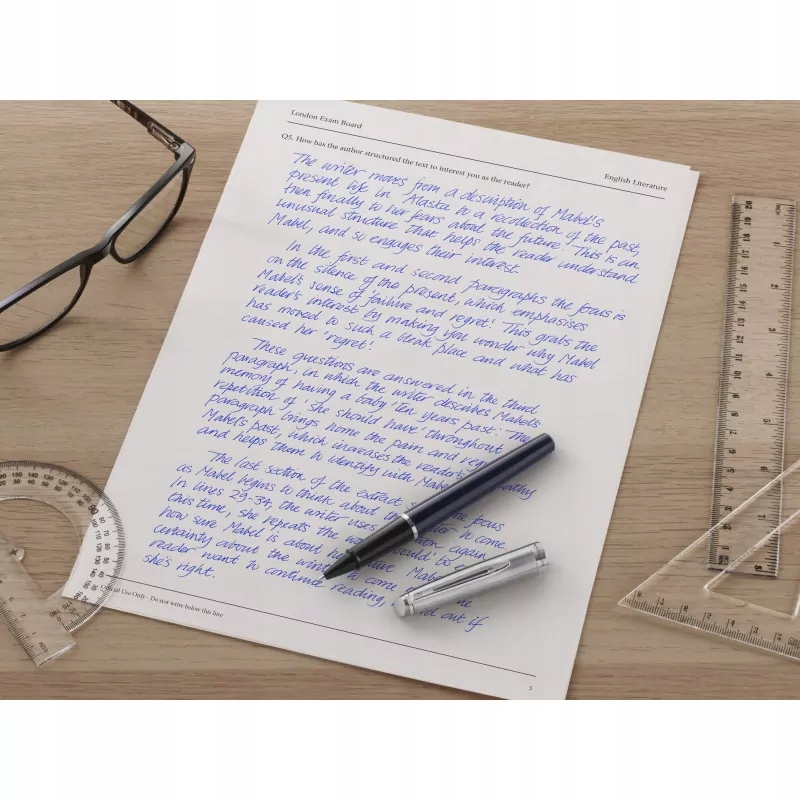 London Exam Board
English Literature
Q5. How has the author structured the text to interest you as the reader?
The writer moves from a description of Mabel's
present life in Alaska to a recollection of the past,
then finally to her fears about the future. This is an
unusual structure that helps the reader understand
Mabel, and so engages their interest.
In the first and second paragraphs the focus is
on the silence of the present, which emphasises
Mabel's sense of 'failure and regret'. This grabs the
reader's interest by making you wonder why Mabel
has moved to such a bleak place and what has
caused her 'regret'.
These questions are answered in the third
paragraph, in which the writer describes Mabel's
memory of having a baby 'ten years past'. The
repetition of 'she should have' throughout
paragraph brings home the pain and
Mabel's past, which increases the reader's
and helps them to identify with Mabel
The last section of the extract focus
as Mabel begins to think about the to come
In lines 29-34, the writer uses again
this time, she repeats the would be
how sure Mabel is about her Mabel
certainty about the to come the
reader want to continue reading, out if
she's right.
Use Only - Do not write below this line
5